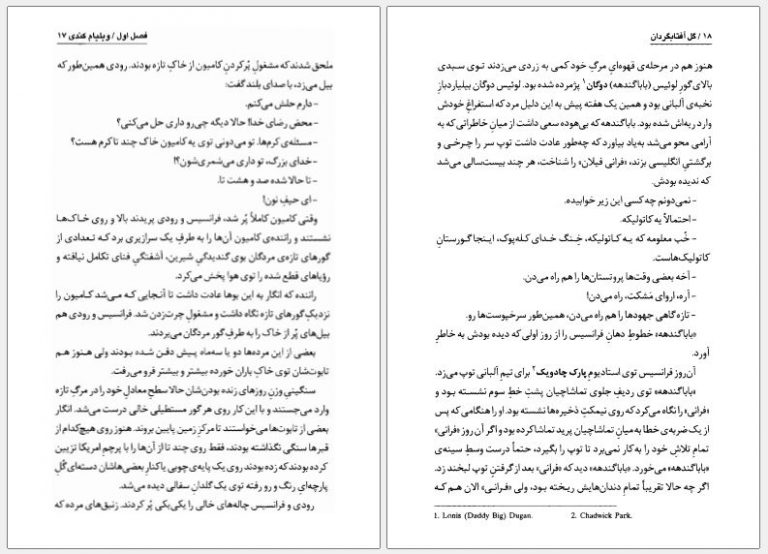 فصل اول / ویلیام کندی ۱۷
ملحق شدند که مشغولِ پُر کردنِ کامیون از خاکِ تازه بودند. رودی همین‌طور که
بیل می‌زد، با صدای بلند گفت:
- دارم حلش می‌کنم.
- محض رضای خدا! حالا دیگه چی‌رو داری حل می‌کنی؟
- مسئله‌ی کرم‌ها. تو می‌دونی توی یه کامیون خاک چند تا کرم هست؟
- خدای بزرگ، تو داری می‌شمری‌شون؟!
- تا حالا شده صد و هشت تا.
- ای حیفِ نون!
وقتی کامیون کاملاً پُر شد، فرانسیس و رودی پریدند بالا و روی خاک‌ها
نشستند و راننده‌ی کامیون آن‌ها را به طرفِ یک سرازیری برد که تعدادی از
گورهای تازه‌ی مردگان بوی گندیدگیِ شیرین، آشفتگیِ فنای تکامل نیافته و
رؤیاهای قطع شده را توی هوا پخش می‌کرد.
راننده که انگار به این بوها عادت داشت تا آنجایی که می‌شد کامیون را
نزدیکِ گورهای تازه نگاه داشت و مشغولِ چرت‌زدن شد. فرانسیس و رودی هم
بیل‌های پُر از خاک را به طرفِ گورِ مردگان می‌بردند.
بعضی از این مرده‌ها دو یا سه‌ماه پیش دفن شده بودند ولی هنوز هم
تابوت‌شان توی خاکِ باران خورده بیشتر و بیشتر فرو می‌رفت.
سنگینیِ وزنِ روزهای زنده بودن‌شان حالا سطحِ معادلِ خود را در مرگِ تازه
وارد می‌جستند و با این کار روی هر گور مستطیلی خالی درست می‌شد. انگار
بعضی از تابوت‌ها می‌خواستند تا مرکزِ زمین پایین بروند. هنوز روی هیچ‌کدام از
قبرها سنگی نگذاشته بودند، فقط روی چند تا از آن‌ها را با پرچمِ امریکا تزیین
کرده بودند که زده بودند روی یک پایه‌ی چوبی یا کنارِ بعضی‌هاشان دسته‌ای گُلِ
پارچه‌ای رنگ و رو رفته توی یک گلدانِ سفالی دیده می‌شد.
رودی و فرانسیس چاله‌های خالی را یکی‌یکی پُر کردند. زنبق‌های مرده که
۱۸ / گل آفتابگردان
هنوز هم در مرحله‌ی قهوه‌ایِ مرگِ خود کمی به زردی می‌زدند توی سبدی
بالای گورِ لوئیس (باباگندهه) دوگان۱ پژمرده شده بود. لوئیس دوگان بیلیاردبازِ
نخبه‌ی آلبانی بود و همین یک هفته پیش به این دلیل مرد که استفراغِ خودش
وارد ریه‌اش شده بود. باباگندهه که بی‌هوده سعی داشت از میانِ خاطراتی که به
آرامی محو می‌شد به‌یاد بیاورد که چه‌طور عادت داشت توپ سر را چرخی و
برگشتیِ انگلیسی بزند، «فرانی فیلان» را شناخت، هر چند بیست‌سالی می‌شد
که ندیده بودش.
- نمی‌دونم چه کسی این زیر خوابیده.
- احتمالاً یه کاتولیکه.
- خُب معلومه که یه کاتولیکه، خِنگِ خدای کله‌پوک، اینجا گورستانِ
کاتولیک‌هاست.
- آخه بعضی وقت‌ها پروتستان‌ها را هم راه می‌دن.
- آره، اروای مَشکت، راه می‌دن!
- تازه گاهی جهودها را هم راه می‌دن، همین‌طور سرخپوست‌ها رو.
«باباگندهه» خطوطِ دهانِ فرانسیس را از روز اولی که دیده بودش به خاطر
آورد.
آن‌روز فرانسیس توی استادیومِ پارک چادویک۲ برای تیم آلبانی توپ می‌زد.
«باباگندهه» توی ردیفِ جلوی تماشاچیان پشتِ خطِ سوم نشسته بود و
«فرانی» را نگاه می‌کرد که روی نیمکتِ ذخیره‌ها نشسته بود. او را هنگامی که پس
از یک ضربه‌ی خطا به میانِ تماشاچیان پرید تماشا کرده بود و اگر آن روز «فرانی»
تمامِ تلاشِ خود را به‌کار نمی‌برد تا توپ را بگیرد، حتماً درست وسطِ سینه‌ی
«باباگندهه» می‌خورد. «باباگندهه» دید که «فرانی» بعد از گرفتنِ توپ لبخند زد.
اگر چه حالا تقریباً تمامِ دندان‌هایش ریخته بود، ولی «فرانی» الان هم که
1. Lonis (Daddy Big) Dugan. 2. Chadwick Park.